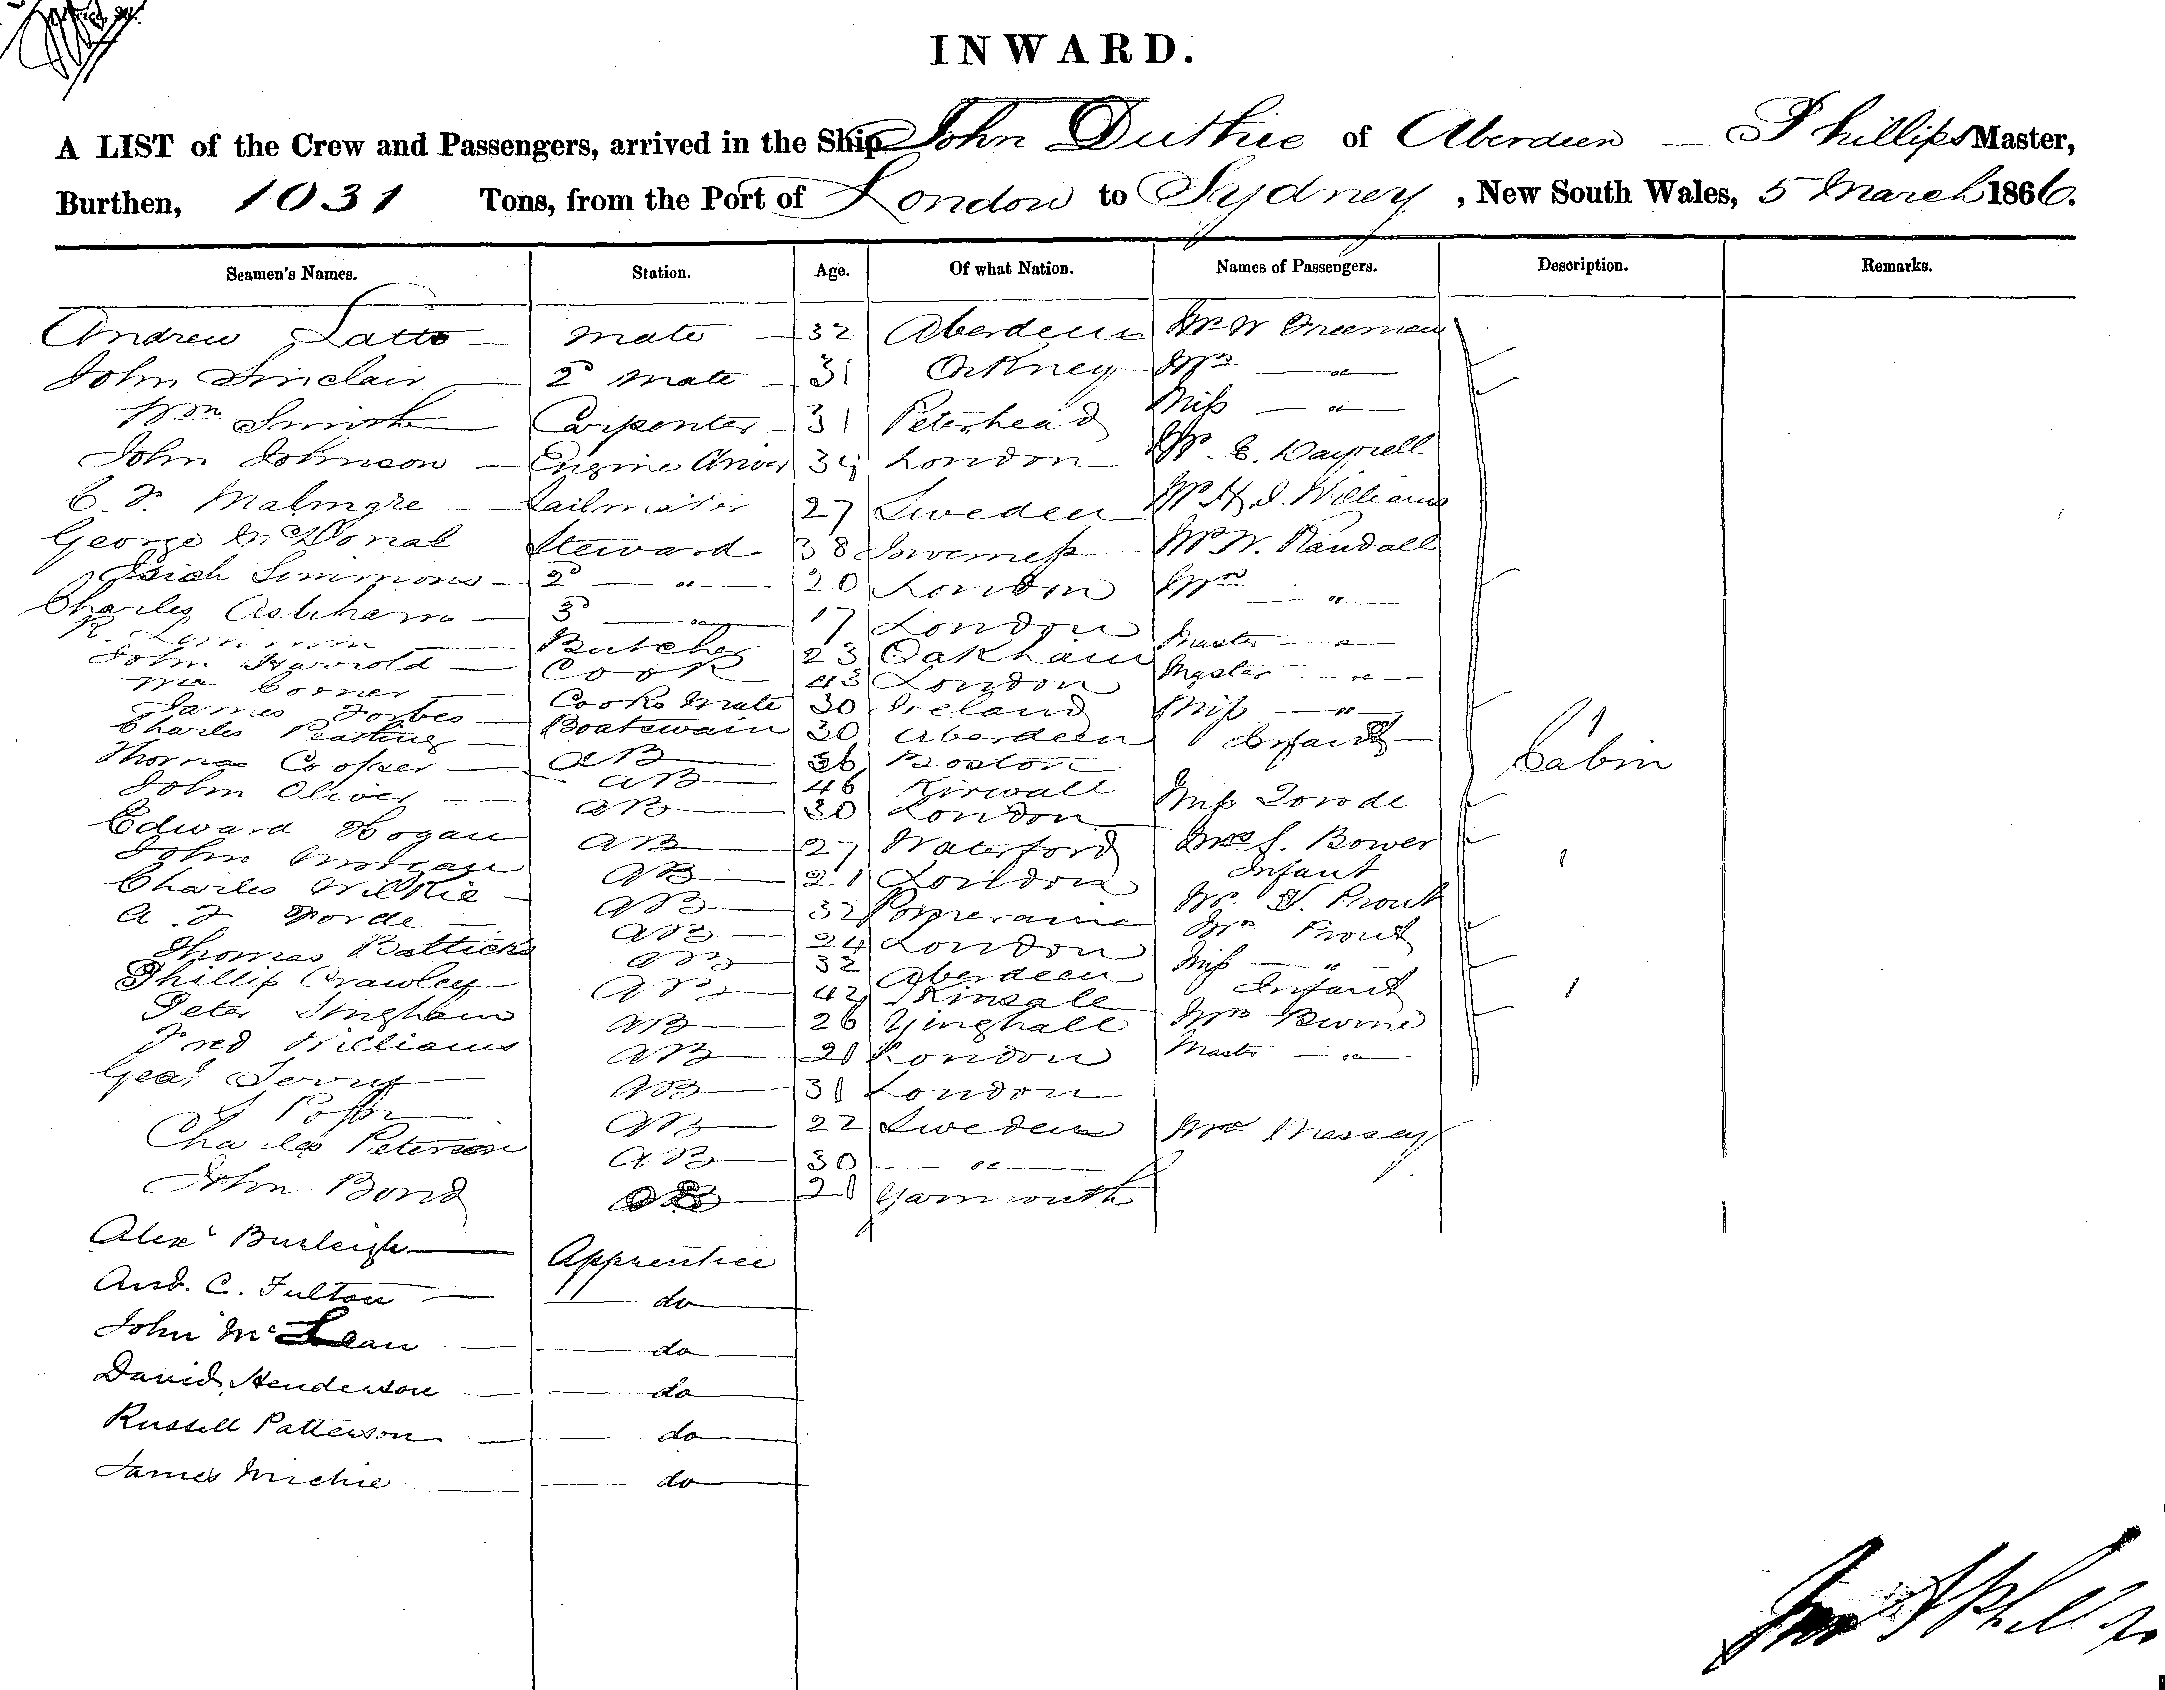 INWARD.
A LIST of the Crew and Passengers, arrived in the Ship John Duthie of Aberdeen — Phillips Master,
Burthen, 1031 Tons, from the Port of London to Sydney, New South Wales, 5 March 1866.
Seamen's Names. Station. Age. Of what Nation. Names of Passengers. Description. Remarks.
Andrew Latto — Mate — 32 Aberdeen Mr W Freeman
John Sinclair — 2d Mate — 31 Orkney Mrs — " —
Wm Smith Carpenter — 31 Peterhead Miss — " —
John Johnson — Engine Driver 34 London — Mr. E. Dayrell
C. F. Malmgre — Sailmaker 27 Sweden — Mr H. J. Williams
George McDonal Steward — 38 Inverness — Mr W. Randall
Simmons — 2d — " — 20 London Mrs — " —
Charles — 3d — " — 17 London Master — " —
R. Butcher 23 Oakham Master — " —
John Harrold — Cook — 43 London Miss — " —
Wm Corner — Cooks Mate 30 Ireland Infant —
James Forbes — Boatswain 30 Aberdeen
Charles — AB — 36 Boston Cabin
Thomas Cooper — AB — 46 Kirwall Miss
John Oliver — AB — 30 London
Edward Hogan AB — 27 Waterford Mrs S. Bower
John Morgan AB — 21 London Infant
Charles Wilkie — AB — 32 Mr. H. Prout
A. F. — AB — 24 London Mrs Prout
Thomas AB — 32 Aberdeen Miss — " —
Phillip Crawley — AB — 42 Kinsale Infant
Peter AB — 26 Mrs
Fred Williams AB — 21 London Master — " —
Geo. AB — 31 London
AB — 22 Sweden Mrs Massey
Charles Peterson AB — 30 — " —
John Bond AB — 21 Yarmouth
Alexr Burleigh — Apprentice
And. C. Fulton — do —
John McLean — do —
David Henderson — do —
Russell Patterson — do —
James Michie — do —